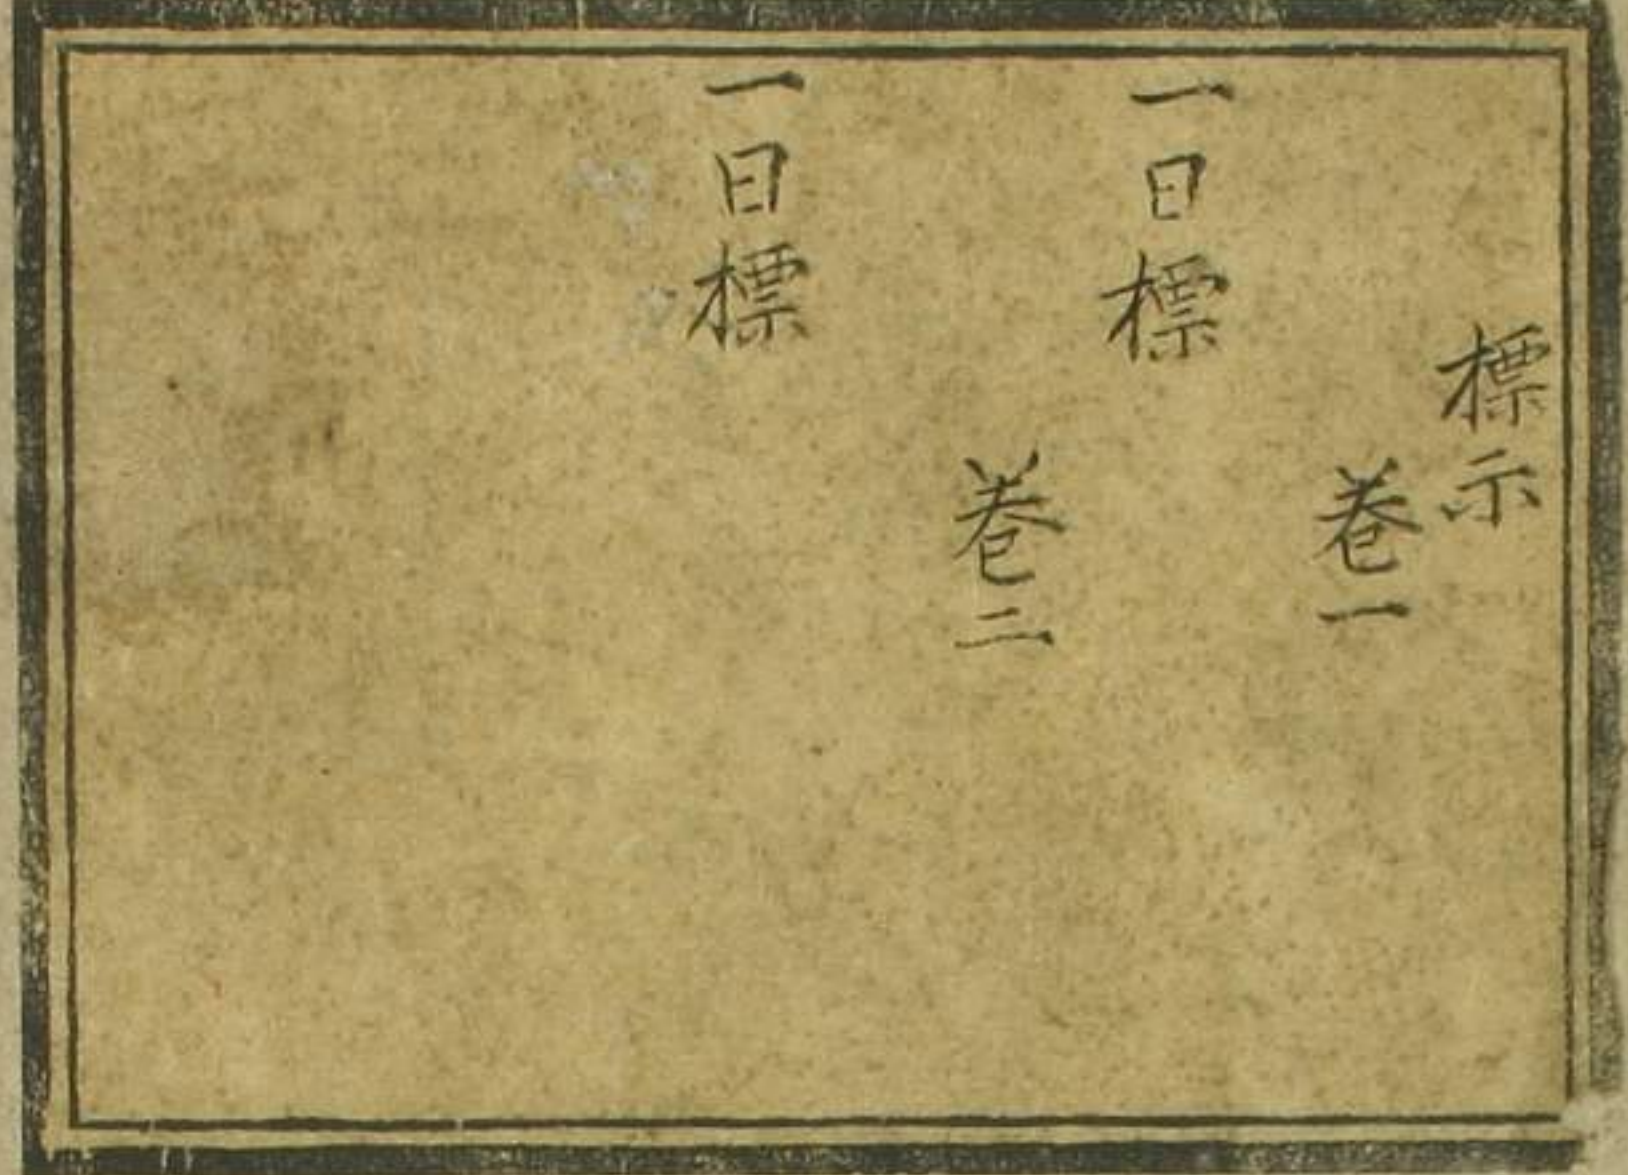 標示
卷一
一曰標
卷二
一曰標